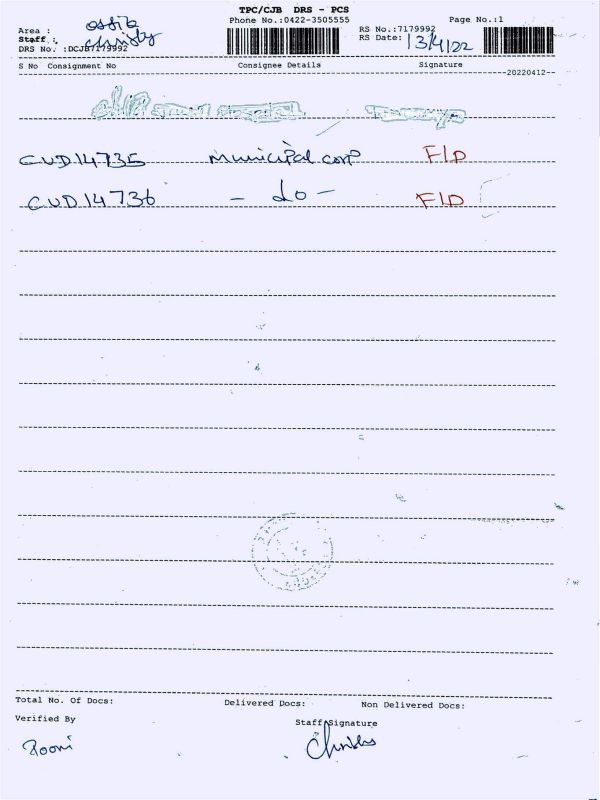 TPC/CJB DRS - PCS
Phone No.:0422-3505555 Page No.:1
Area :
Staff : Christy
DRS No. :DCJB7179992
RS No.:7179992
RS Date: 13/4/22
S No Consignment No Consignee Details Signature
--20220412--
CUD14735 Municipal corp F/D
CUD14736 - do - F/D
Total No. Of Docs: Delivered Docs: Non Delivered Docs:
Verified By Staff Signature